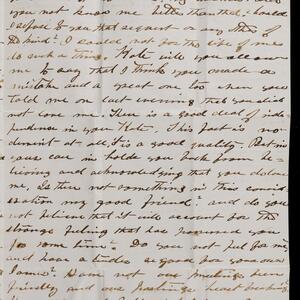 you not know me better than that? Could
I suppose I you that account or any thing of
the kind? I could not for the life of me
do such a thing. Kate will you allow
me to say that I think you made a
mistake and a great one too when you
told me on last evening that you did
not love me. There is a good deal of inde-
pendence in you Kate. This fact is no
demerit at all, it is a good quality. But in
your case in holds you back from be-
lieving and acknowledging that you do love
me. Is there not something in this consid-
eration my good friend? and do you
not believe that it will account for the
strange feeling that has possessed you
for some time? Do you not feel for me
and have a tender regard for your own
Have not our meetings been
friendly and our partings heart-breaking?